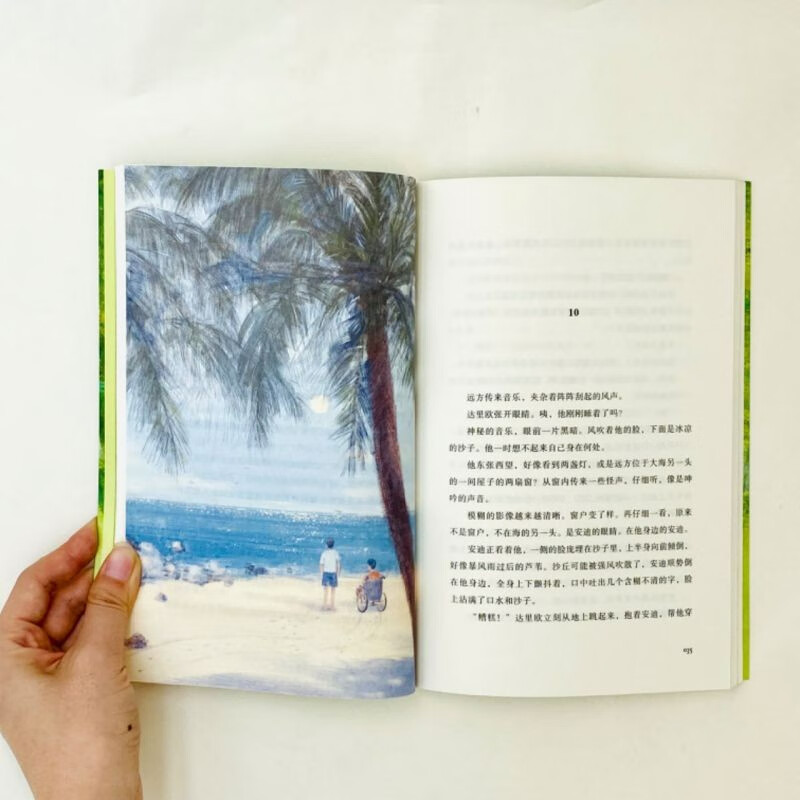 10
远方传来音乐，夹杂着阵阵刮起的风声。
达里欧张开眼睛。咦，他刚刚睡着了吗？
神秘的音乐，眼前一片黑暗。风吹着他的脸，下面是冰凉
的沙子。他一时想不起来自己身在何处。
他东张西望，好像看到两盏灯，或是远方位于大海另一头
的一间屋子的两扇窗？从窗内传来一些怪声，仔细听，像是呻
吟的声音。
模糊的影像越来越清晰，窗户变了样。再仔细一看，原来
不是窗户，不在海的另一头。是安迪的眼睛。在他身边的安迪。
安迪正看着他，一侧的脸庞埋在沙子里，上半身向前倾倒，
好像暴风雨过后的芦苇。沙丘可能被强风吹散了，安迪顺势倒
在他身边，全身上下颤抖着，口中吐出几个含糊不清的字，脸
上沾满了口水和沙子。
“糟糕！”达里欧立刻从地上跳起来，抱着安迪，帮他穿
035